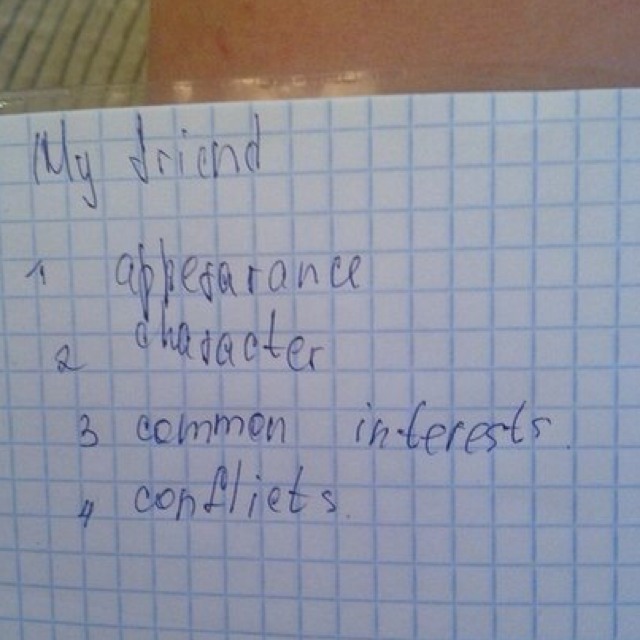 My friend
1 appearance
2 character
3 common interests.
4 conflicts.